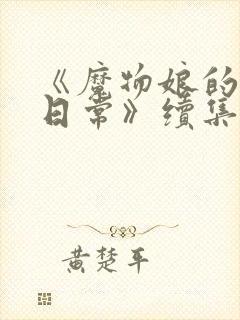 《魔物娘的
日常》續集
黃楚平